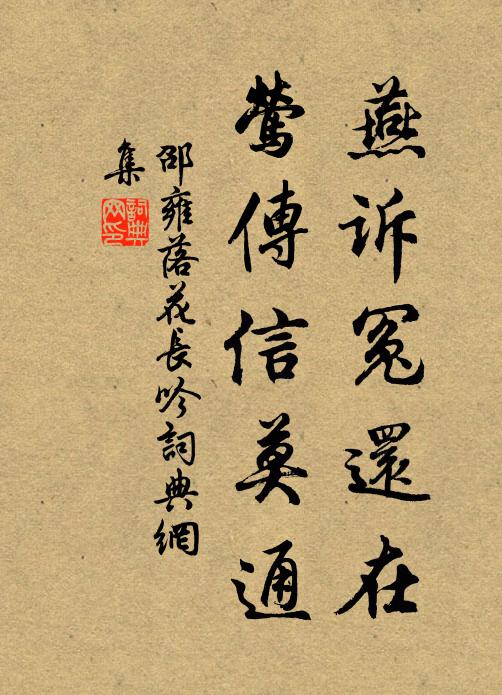 燕訴冤還在
鶯傳信莫通
邵雍落花長吟詞典網
集
詞典網印